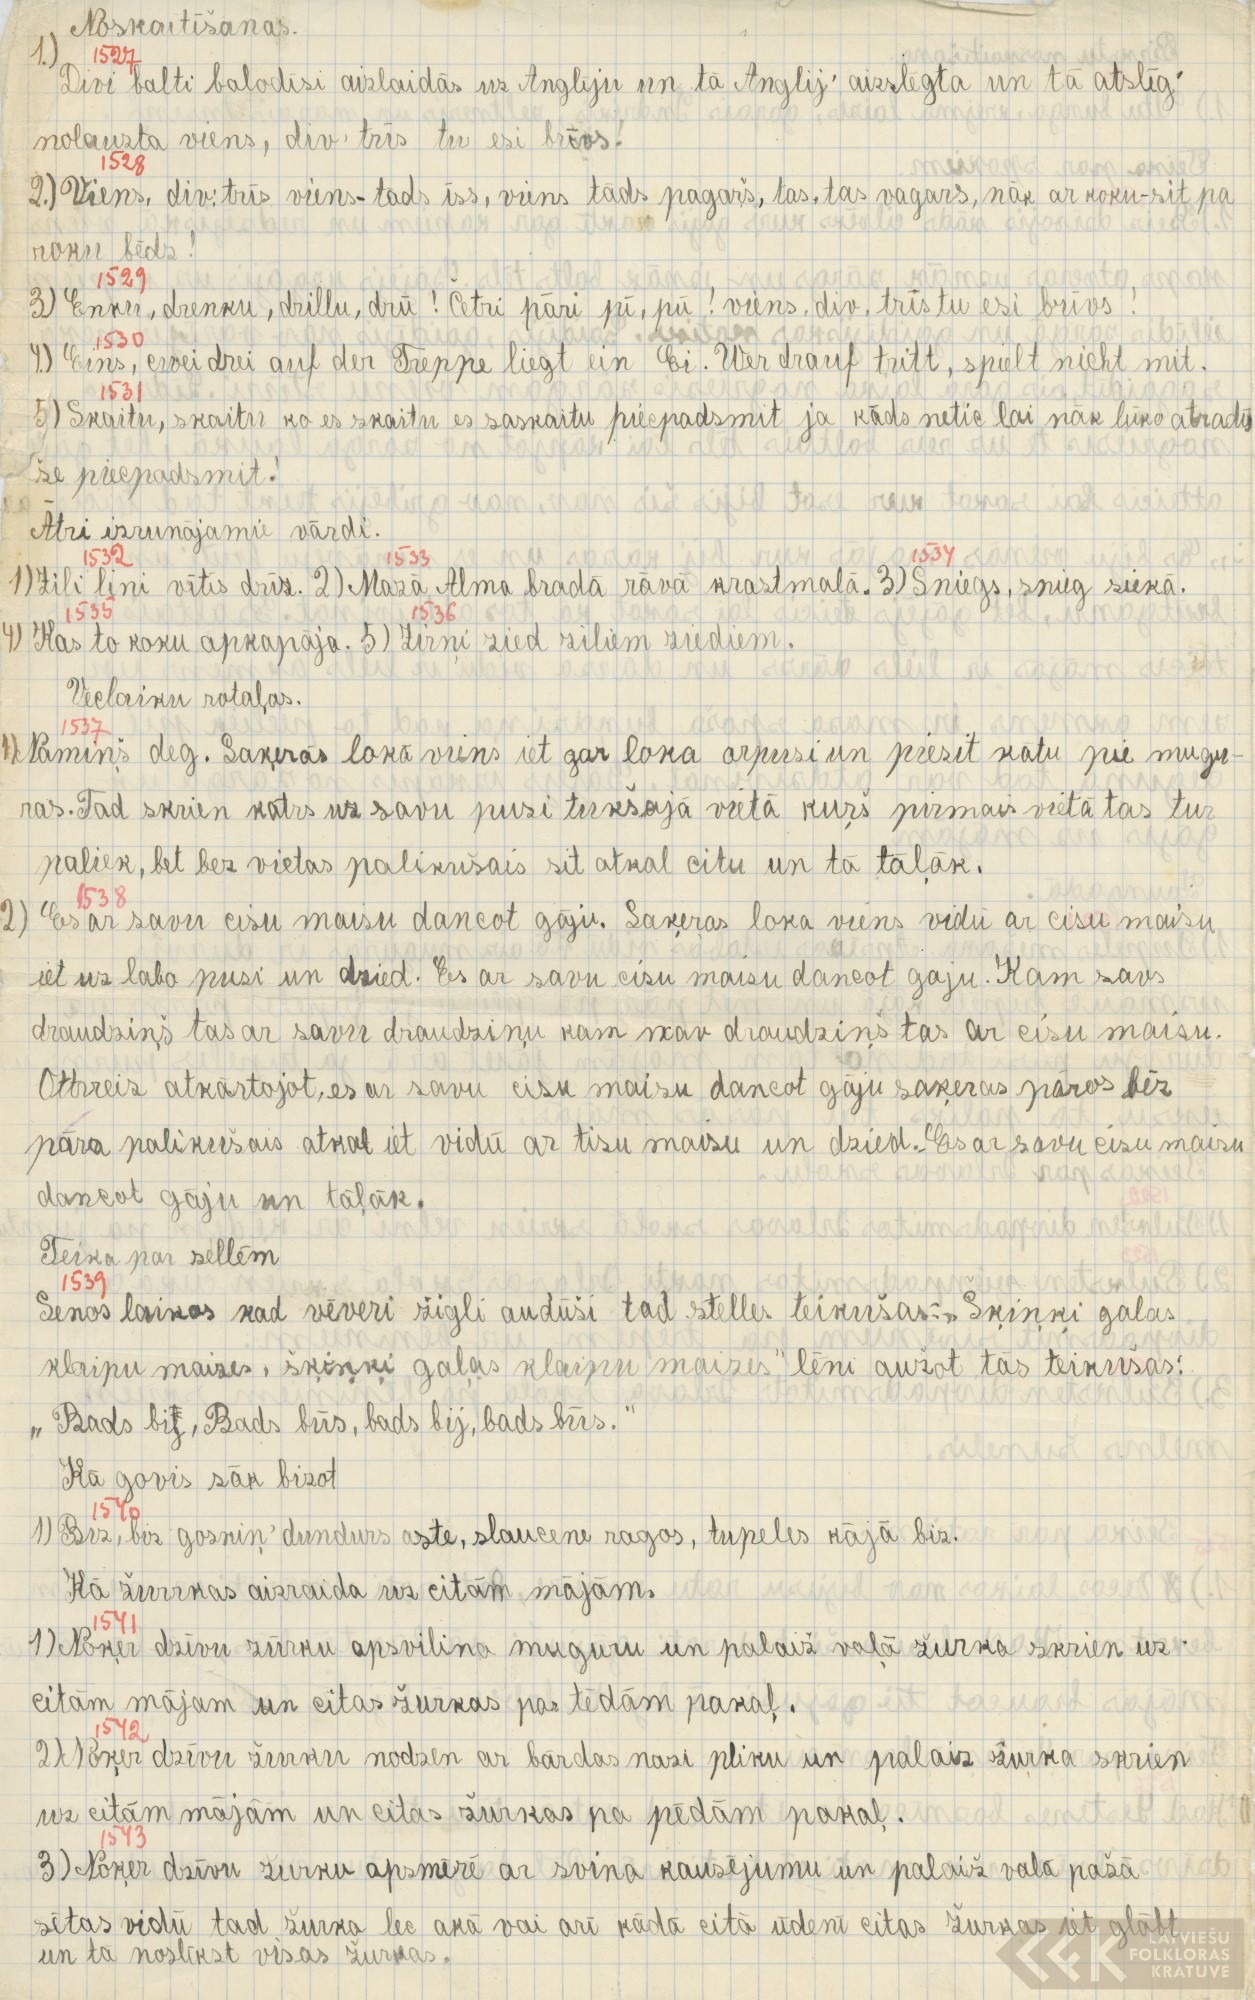 Noskaitīšanas.
1.) 1527
Divi balti balodīsi aizlaidās uz Angliju un tā Anglij' aizslēgta un tā atslēg'
nolauzta viens, div' trīs tu esi brīvs!
1528
2.) Viens, div: trīs viens-tāds īss, viens tāds pagaŗš, tas, tas vagaŗs, nāk ar koku-sit pa
roku bēdz!
1529
3) Enku, drenku, drillu, drū! Četri pāri pū, pū! viens, div, trīs tu esi brīvs!
1530
4.) Eins, cwei drei auf der Treppe liegt ein Ei. Wer drauf tritt, spielt nicht mit.
1531
5) Skaitu, skaitu ko es skaitu es saskaitu piecpadsmit ja kāds netic lai nāk lūko atradīs
še piecpadsmit!
Ātri izrunājamie vārdi.
1532 1533 1534
1) Zili lini vītīs drīz. 2) Mazā Alma bradā rāvā krastmalā. 3) Sniegs, snieg siekā.
1535 1536
4) Kas to koku apkapāja. 5) Zirņi zied ziliem ziediem.
Veclaiku rotaļas.
1537
1) Namiņš deg. Saķerās lokā viens iet gar loka ārpusi un piesit kātu pie mugu-
ras. Tad skrien katrs uz savu pusi tukšajā vietā kuŗš pirmais vietā tas tur
paliek, bet bez vietas palikušais sit atkal citu un tā tāļāk.
1538
2) Es ar savu cisu maisu dancot gāju. Saķeŗas loka viens vidū ar cisu maisu
iet uz labo pusi un dzied. Es ar savu cisu maisu dancot gāju. Kam savs
draudziņš tas ar savu draudziņu kam nav draudziņš tas ar cisu maisu.
Otrreiz atkārtojot, es ar savu cisu maisu dancot gāju saķeras pāros bēz
pāra palikušais atkal iet vidū ar tisu maisu un dzied. Es ar savu cisu maisu
dancot gāju un tāļāk.
Teika par sellēm
1539
Senos laikos kad vēveri žigli auduši tad stelles teikušas: „Šķiņķi gaļas
klaipu maizes, šķiņķi gaļas klaipu maizes" lēni aužot tās teikušas:
„Bads bij, Bads būs, bads bij, bads būs."
Kā govis sāk bizot
1540
1) Biz, biz gosniņ' dundurs aste, slaucene ragos, tupeles kājā biz.
Kā žurkas aizraida uz citām mājām.
1541
1) Noķer dzīvu žurku apsvilina muguru un palaiž vaļā žurka skrien uz
citām mājam un citas žurkas pa tēdām pakaļ.
1542
2) Noķer dzīvu žurku nodzen ar bārdas nazi pliku un palaiz žurka skrien
uz citām mājām un citas žurkas pa pēdām pakaļ.
1543
3) Noķer dzīvu žurku apsmērē ar svina kausējumu un palaiž vaļā pašā
sētas vidū tad žurka lec akā vai arī kādā citā ūdenī citas žurkas iet glābt
un tā noslīkst visas žurkas.
LATVIEŠU
FOLKLORAS
KRĀTUVE